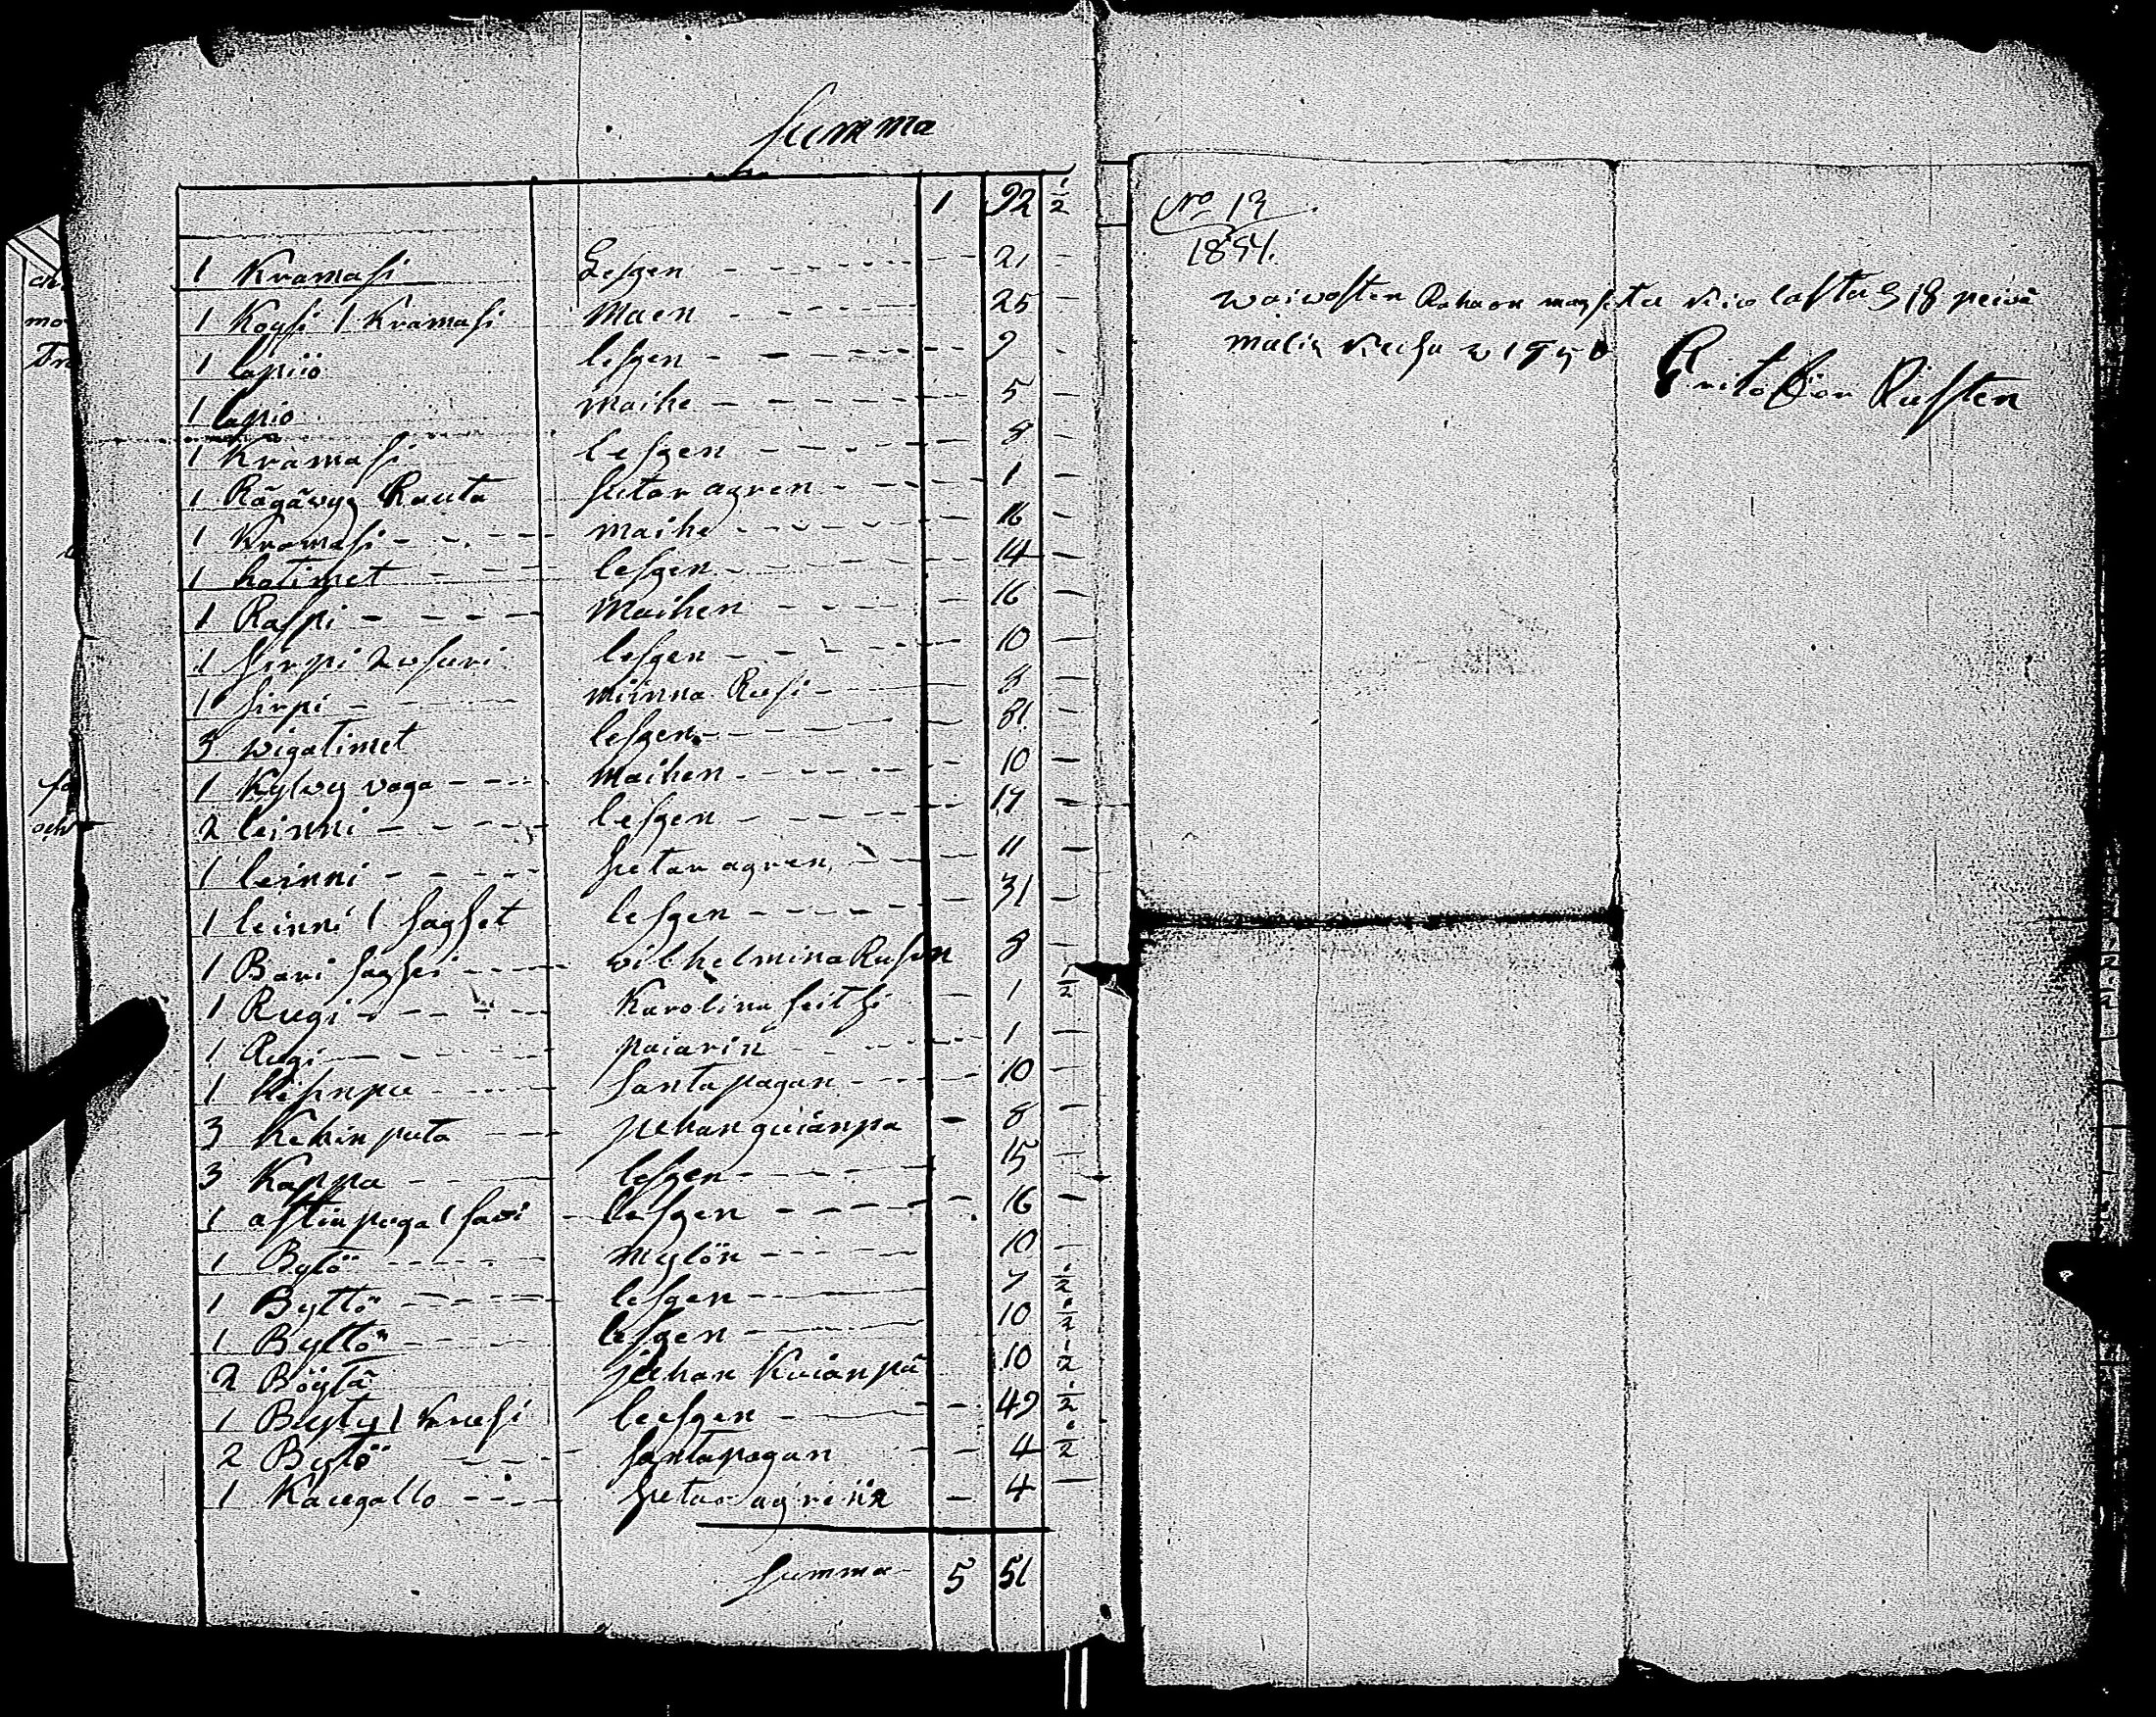 Summa
1 92 1/2
1 Kramasi Lesgen - - - 21 -
1 Kogsi 1 Kramasi Maen - - - 25 -
1 lapiio lesgen - - - 9 -
1 lapio maihe - - - 5 -
1 Kramasi lesgen - - - 8 -
1 Rägäwyg Rauta sutar agren - - - 1 -
1 Kramasi - - - maihe - - - 16 -
1 hatimet - - - lesgen - - - 14 -
1 Raspi - - - Maihen - - - 16 -
1 sirpi wesuri lesgen - - - 10 -
1 sirpi - - - miinna Rusi - - - 8 -
3 wigatimet lesgen - - - 81 -
1 Kylwy vaga - - - maihen - - - 10 -
2 leinni - - - lesgen - - - 19 -
1 leinni - - - sutar agren - - - 11 -
1 leinni 1 sagset lesgen - - - 31 -
1 Bari sagsei - - - wilhelmina Rusun 8 -
1 Rugi - - - Karolina seitsi - 1 1/2
1 Rugi - - - paiarin - - - 1 -
1 - - - santapagan - - - 10 -
3 Kehinputa - - - juhan guiänpa - 8 -
3 Kappa - - - lesgen - - - 15 -
1 astia puga 1 savi - lesgen - - - 16 -
1 Bytö - - - mylön - - - 10 -
1 Byttö - - - lesgen - - - 7 1/2
1 Byttö - - - lesgen - - - 10 1/2
2 Böytä juhan Kuianpä 10 1/2
1 Byty 1 Kruusi leesgen - - - 49 1/2
2 Bytö - - - santapagan - - 4 1/2
1 Kauegallo - - - sutar agrenin - 4 -
Summa 5 51
No 13
1854.
waiwasten Rahaan magsetu Kio lastu 3 18 peiwä
malis Kusu w 185
Rusten